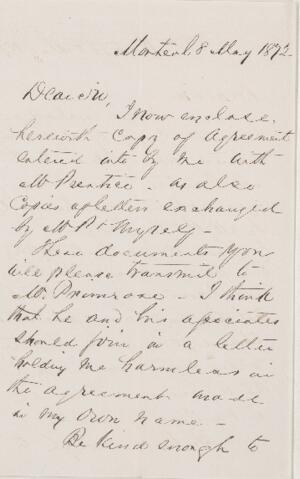 Montreal 8 May 1872.
Dear Sir,
I now enclose
herewith copy of Agreement
entered into by me with
Mr Prentice - as also
Copies of letters exchanged
by Mr P & Myself -
These documents you
will please transmit to
Mr. Primrose - I think
that he and his associates
should join in a letter
holding me harmless in
the agreement made
in my own name -
Be kind enough to